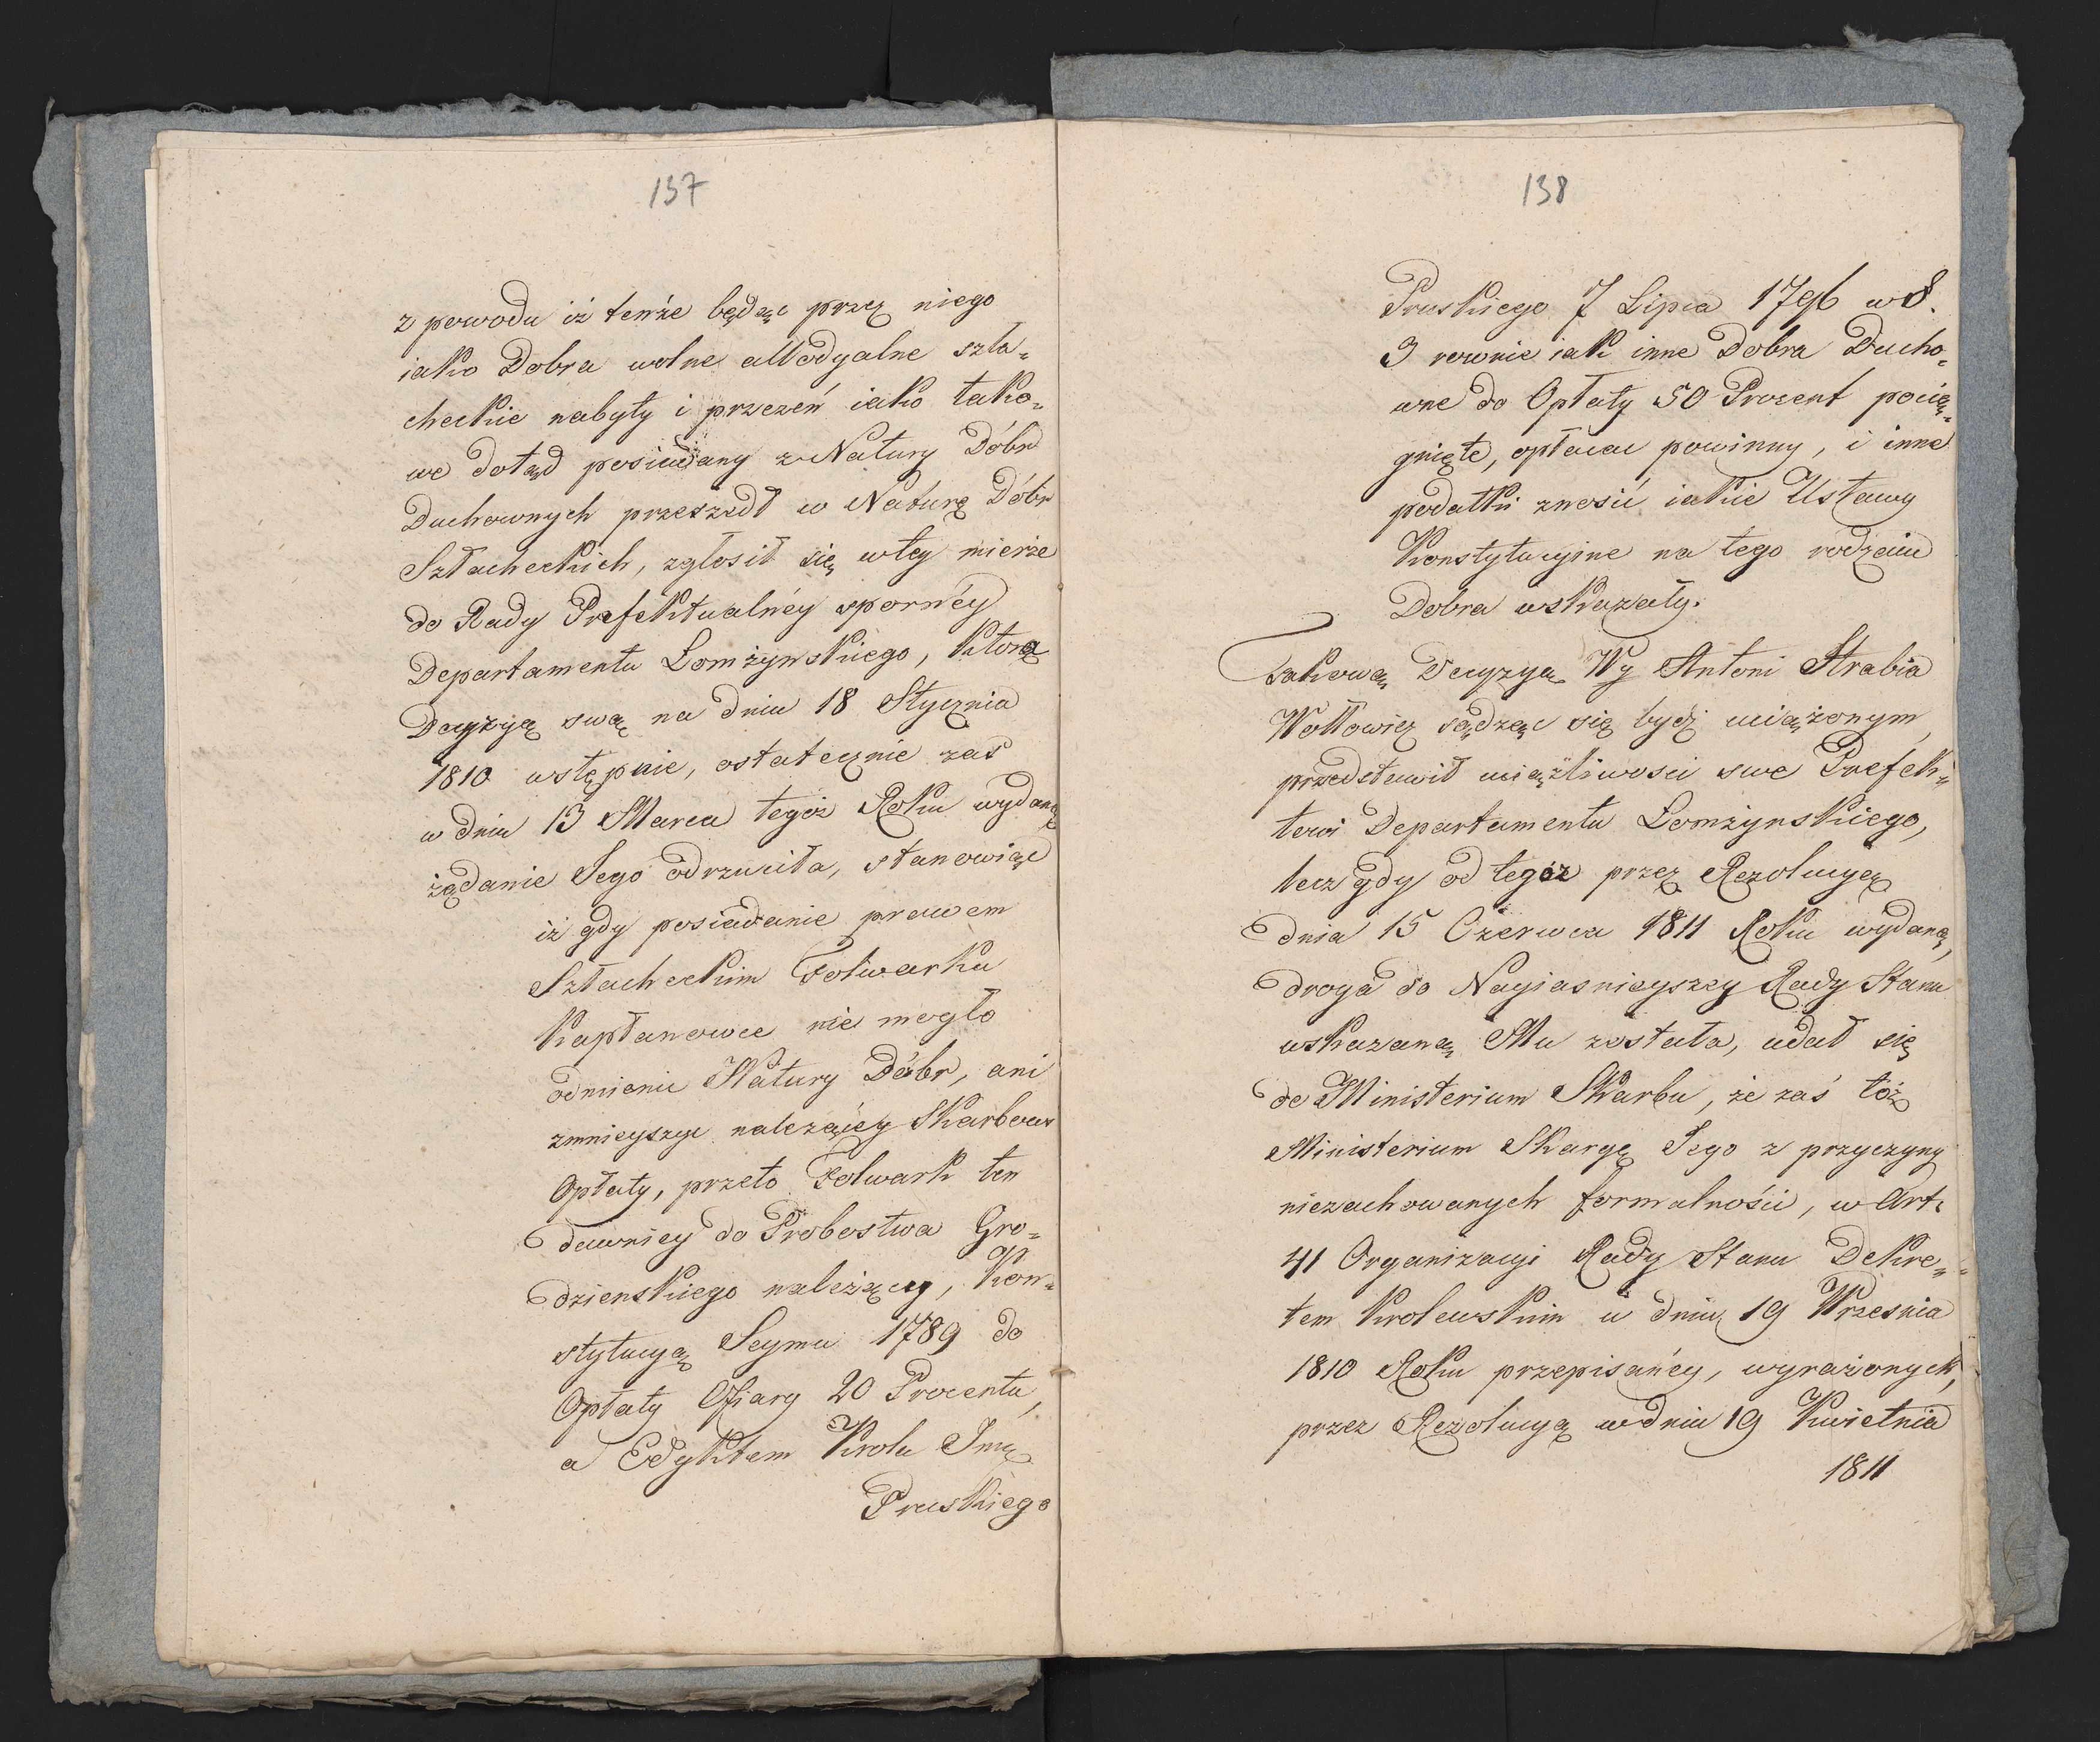 137
z powodu iż tenże będąc przez niego
iako Dobra wolne allodyalne szla=
checkie nabyty i przezeń iako tako=
we dotąd posiadany z Natury Dóbr
Duchownych przeszedł w Naturę Dóbr
Szlacheckich, zgłosił się w tey mierze
do Rady Prefekturalnéy sporney
Departamentu Łomżynskiego, która
Decyzyą swą na dniu 18 Stycznia
1810 wstępnie, ostatecznie zas
w dniu 13 Marca tegoż Roku wydaną
żądanie Jego odrzuciła, stanowiąc
iż gdy posiadanie prawem
Szlacheckim Folwarku
Kapłanowce nie mogło
odmienic Natury Dóbr, ani
zmnieyszyc należącéy Skarbowi
Opłaty, przeto Folwark ten
dawniey do Probostwa Gro=
dzienskiego należący, Kon=
stytucyą Seymu 1789 do
Opłaty Ofiary 20 Procentu,
a Edyktem Krola Jmę
Pruskiego
138
Pruskiego 7 Lipca 1796 w §.
3 rownie iak inne Dobra Ducho=
wne do Opłaty 50 Procent pocią=
gnięte, opłacac powinny, i inne
podatki znosić iakie Ustawy
Konstytucyine na tego rodzaiu
Dobra wskazały.
Takową Decyzyą Wy Antoni Hrabia
Wołłowicz sądząc się bydź uciążonym,
przedstawił uciążliwosci swe Prefek=
towi Departamentu Łomżynskiego,
lecz gdy od tegoż przez Rezolucyę
dnia 15 Czerwca 1811 Roku wydaną,
droga do Nayiasnieyszey Rady Stanu
wskazaną Mu została, udał się
do Ministerium Skarbu, że zaś toż
Ministerium Skargę Jego z przyczyny
niezachowanych formalności, w Art.
41 Organizacyi Rady Stanu Dekre=
tem Krolewskim w dniu 19 Wrzesnia
1810 Roku przepisanéy, wyrażonych,
przez Rezolucyą w dniu 19 Kwietnia
1811